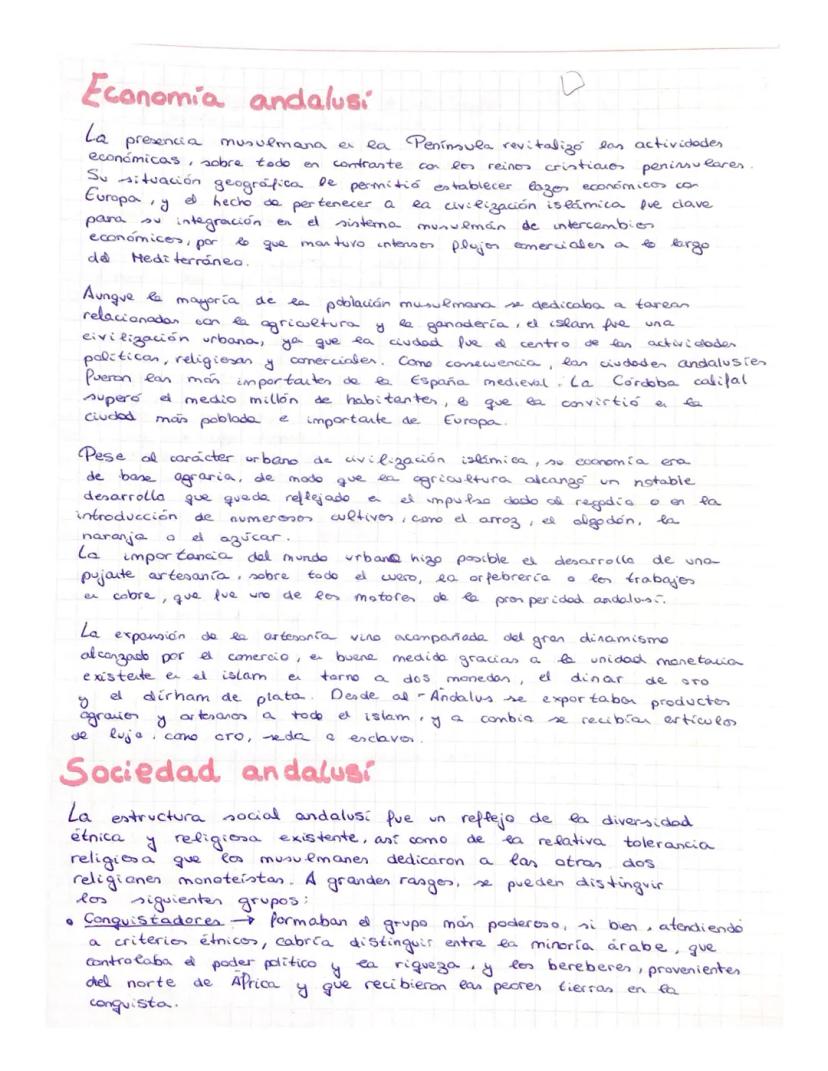 Economía andalusí
La presencia musulmana en la Península revitalizó las actividades
económicas, sobre todo en contraste con los reinos cristianos peninsulares.
Su situación geográfica le permitió establecer lazos económicos con
Europa, y el hecho de pertenecer a la civilización islámica fue clave
para su integración en el sistema musulmán de intercambios
económicos, por lo que mantuvo intensos flujos comerciales a lo largo
del Mediterráneo.
Aunque la mayoría de la población musulmana se dedicaba a tareas
relacionadas con la agricultura y la ganadería, el islam fue una
civilización urbana, ya que la ciudad fue el centro de las actividades
políticas, religiosas y comerciales. Como consecuencia, las ciudades andalusíes
fueron las más importantes de la España medieval. La Córdoba califal
superó el medio millón de habitantes, lo que la convirtió en la
ciudad más poblada e importante de Europa.
Pese al carácter urbano de civilización islámica, su economía era
de base agraria, de modo que la agricultura alcanzó un notable
desarrollo que queda reflejado en el impulso dado al regadío o en la
introducción de numerosos cultivos, como el arroz, el algodón, la
naranja o el azúcar.
La importancia del mundo urbano hizo posible el desarrollo de una
pujante artesanía, sobre todo el cuero, la orfebrería o los trabajos
en cobre, que fue uno de los motores de la prosperidad andalusí.
La expansión de la artesanía vino acompañada del gran dinamismo
alcanzado por el comercio, en buena medida gracias a la unidad monetaria
existente en el islam en torno a dos monedas, el dinar de oro
y el dírham de plata. Desde al-Ándalus se exportaban productos
agrarios y artesanos a todo el islam, y a cambio se recibían artículos
de lujo, como oro, seda o esclavos.
Sociedad andalusí
La estructura social andalusí fue un reflejo de la diversidad
étnica y religiosa existente, así como de la relativa tolerancia
religiosa que los musulmanes dedicaron a las otras dos
religiones monoteístas. A grandes rasgos, se pueden distinguir
los siguientes grupos:
• Conquistadores → formaban el grupo más poderoso, si bien, atendiendo
a criterios étnicos, cabría distinguir entre la minoría árabe, que
controlaba el poder político y la riqueza, y los bereberes, provenientes
del norte de África y que recibieron las peores tierras en la
conquista.